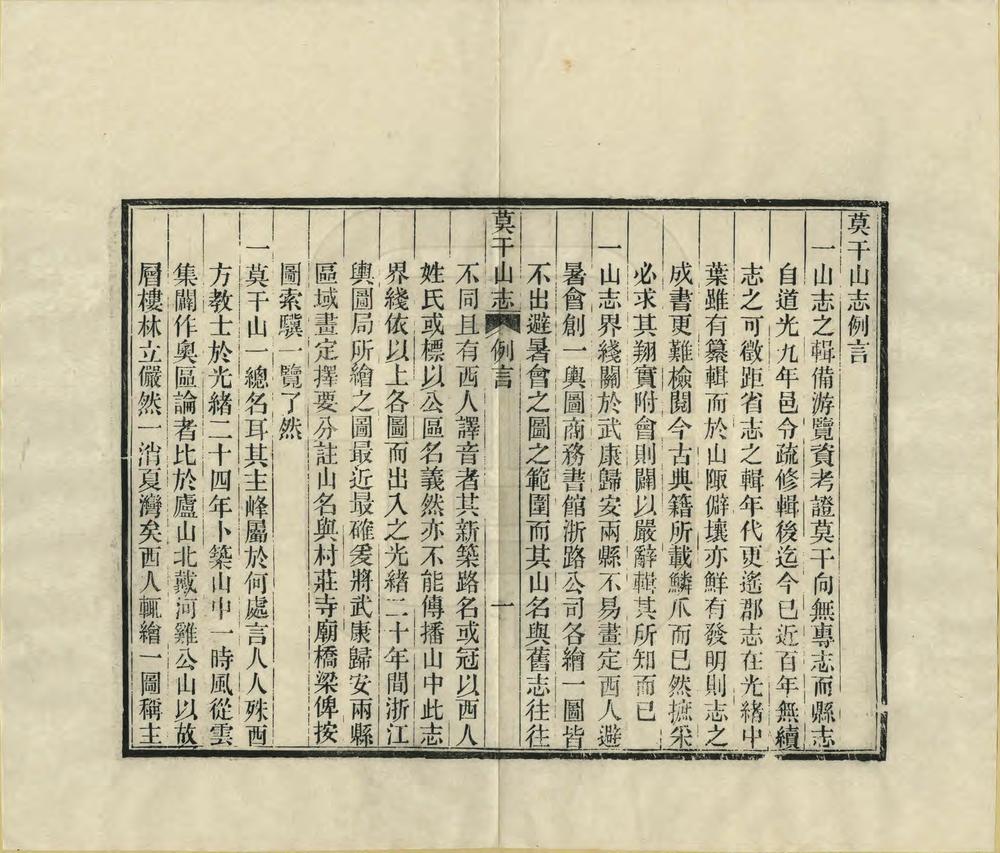 莫干山志例言
一山志之輯備游覽資考證莫干向無專志而縣志
自道光九年邑令疏修輯後迄今已近百年無續
志之可徵距省志之輯年代更遙郡志在光緒中
葉雖有纂輯而於山陬僻壤亦鮮有發明則志之
成書更難檢閱今古典籍所載鱗爪而已然摭采
必求其翔實附會則闢以嚴辭輯其所知而已
一山志界綫關於武康歸安兩縣不易畫定西人避
暑會創一輿圖商務書館浙路公司各繪一圖皆
不出避暑會之圖之範圍而其山名與舊志往往
莫干山志 例言 一
不同且有西人譯音者其新築路名或冠以西人
姓氏或標以公區名義然亦不能傳播山中此志
界綫依以上各圖而出入之光緒二十年間浙江
輿圖局所繪之圖最近最確爰將武康歸安兩縣
區域畫定擇要分註山名與村莊寺廟橋梁俾按
圖索驥一覽了然
一莫干山一總名耳其主峰屬於何處言人人殊西
方教士於光緒二十四年卜築山中一時風從雲
集闢作奧區論者比於廬山北戴河雞公山以故
層樓林立儼然一消夏灣矣西人輒繪一圖稱主